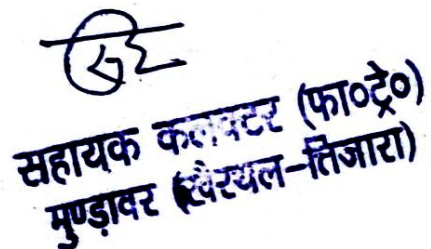 सहायक कलक्टर (फा०ट्रे०)
मुण्ड़ावर (खैरथल-तिजारा)